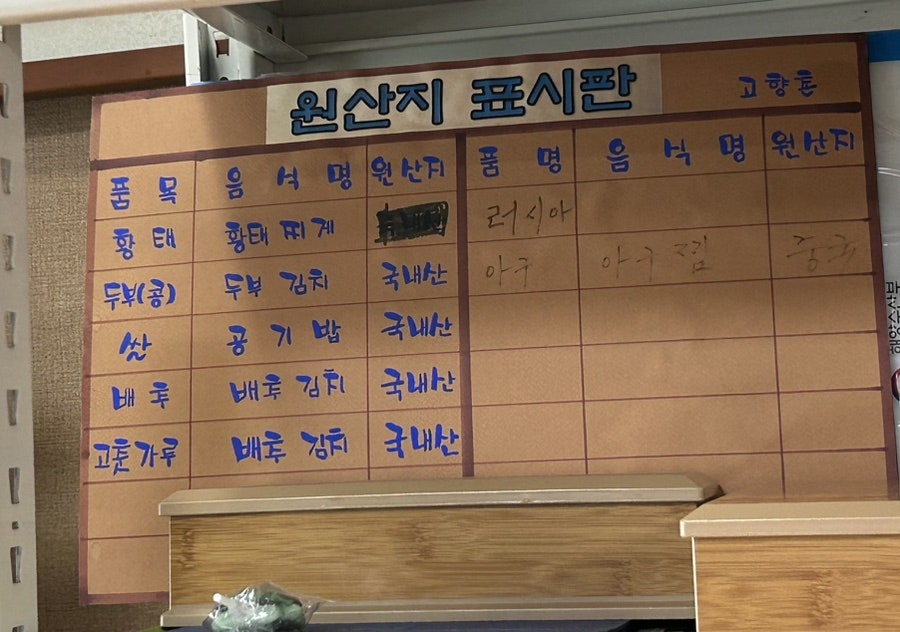 원산지 표시판
고향촌
품목 음식명 원산지 품명 음식명 원산지
황태 황태찌게 러시아
두부(콩) 두부김치 국내산 아구 아구찜 중국
쌀 공기밥 국내산
배추 배추김치 국내산
고춧가루 배추김치 국내산
해양수산부